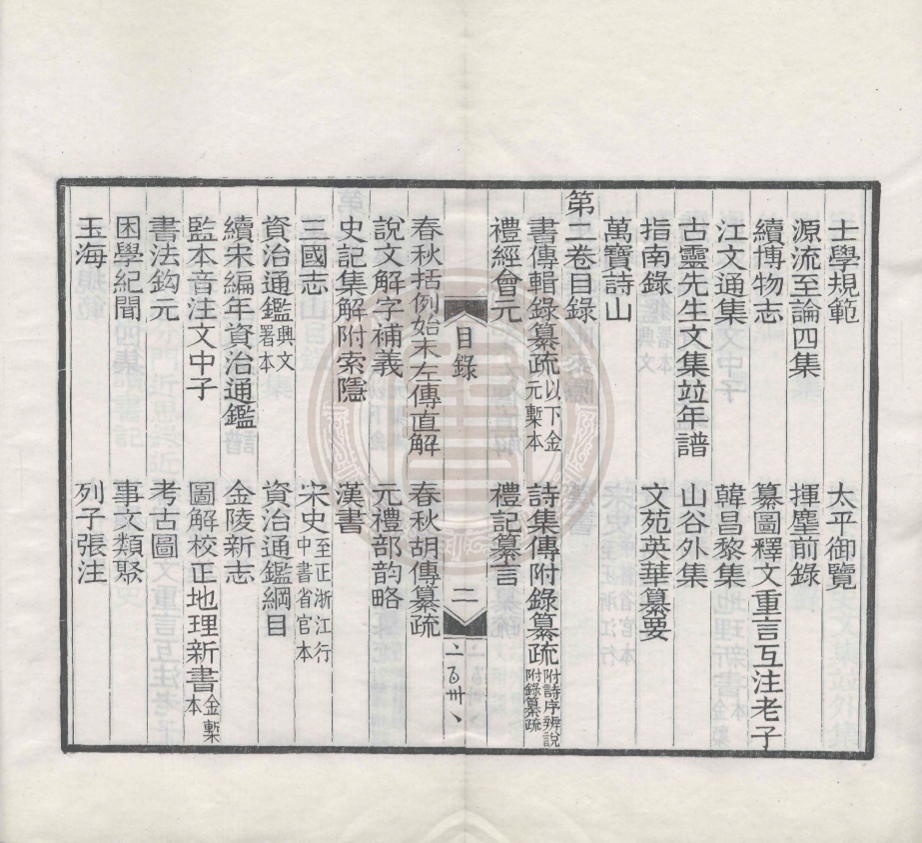 士學規範　太平御覽
源流至論四集　揮麈前錄
續博物志　纂圖釋文重言互注老子
江文通集　韓昌黎集
古靈先生文集竝年譜　山谷外集
指南錄　文苑英華纂要
萬寶詩山
第二卷目錄
書傳輯錄纂疏以下金元槧本　詩集傳附錄纂疏附詩序辨說附錄纂疏
禮經會元　禮記纂言
目錄　二
春秋括例始末左傳直解　春秋胡傳纂疏
說文解字補義　元禮部韵略
史記集解附索隱　漢書
三國志　宋史至正浙江行中書省官本
資治通鑑興文署本　資治通鑑綱目
續宋編年資治通鑑　金陵新志
監本音注文中子　圖解校正地理新書金槧本
書法鈎元　考古圖
困學紀聞　事文類聚
玉海　列子張注